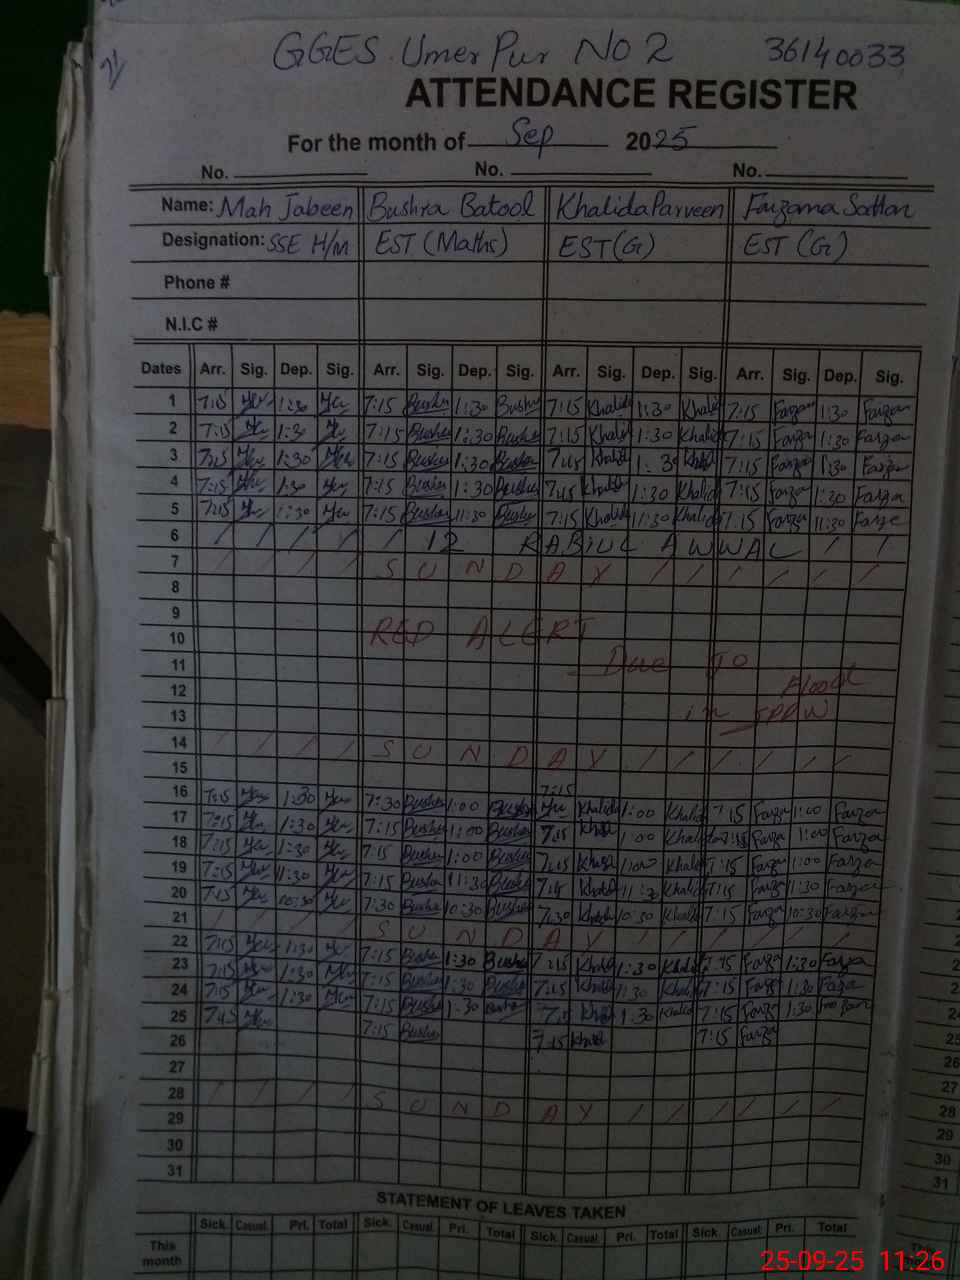 GGES Umer Pur No 2 36140033
ATTENDANCE REGISTER
For the month of Sep 2025
No. No. No.
Name: Mah Jabeen Bushra Batool Khalida Parveen Farzana Sattar
Designation: SSE H/M EST (Maths) EST (G) EST (G)
Phone #
N.I.C #
Dates Arr. Sig. Dep. Sig. Arr. Sig. Dep. Sig. Arr. Sig. Dep. Sig. Arr. Sig. Dep. Sig.
1 7:15 1:30 7:15 Bushra 1:30 Bushra 7:15 Khalida 1:30 Khalid 7:15 Farzan 1:30 Farzan
2 7:15 1:30 7:15 Bushra 1:30 Bushra 7:15 Khalid 1:30 Khalid 7:15 Farza 1:30 Farzan
3 7:15 1:30 7:15 Bushra 1:30 Bushra 7:15 1:3 7:15 Farza 1:30 Farzan
4 7:15 1:30 7:15 Bushra 1:30 Bushra 7:15 Khalid 1:30 Khalid 7:15 Farzan 1:30 Farza
5 7:15 1:30 7:15 Bushra 11:30 Bushr 7:15 Khalid 11:30 Khalid 7:15 Farza 11:30 Farza
6 12 RABIUL AWWAL
7 SUNDAY
8
9
10 RED ALERT
11 Due To
12 Flood
13 in
14 SUNDAY
15
16 7:15 1:30 7:30 Bushra 1:00 Bushra 7:15 Khalida 1:00 Khalid 7:15 Farzan 1:00 Farzan
17 7:15 1:30 7:15 Bushra 1:00 Bushra 7:15 1:00 Khalid 7:15 Farza 1:00 Farzan
18 7:15 1:30 7:15 Bushra 1:00 Bushra 7:15 1:00 Khalid 7:15 Farza 1:00 Farza
19 7:15 11:30 7:15 Bushra 11:30 Bushra 7:15 11:30 Khalid 7:15 Farza 11:30 Farza
20 7:15 10:30 7:30 Bushra 10:30 Bushra 7:30 10:30 Khalid 7:15 Farza 10:30 Farzan
21 SUNDAY
22 7:15 1:30 7:15 Bushra 1:30 Bushra 7:15 Khalid 1:30 Khalid 7:15 Farza 1:30 Farza
23 7:15 1:30 7:15 Bushra 1:30 Bushra 7:15 Khalid 1:30 Khalid 7:15 Farza 1:30 Farza
24 7:15 1:30 7:15 Bushra 1:30 7:15 1:30 Khalid 7:15 Farza 1:30 Farzan
25 7:15 7:15 Bushra 7:15 Khalid 7:15 Farza
26
27
28 SUNDAY
29
30
31
STATEMENT OF LEAVES TAKEN
Sick. Casual. Pri. Total Sick. Casual. Pri. Total Sick. Casual. Pri. Total Sick. Casual. Pri. Total
This
month
25-09-25 11:26